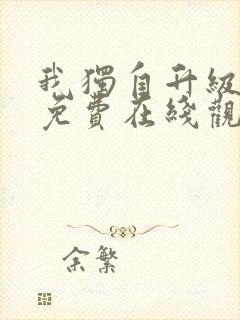 我獨自升級
免費在綫觀
余繁